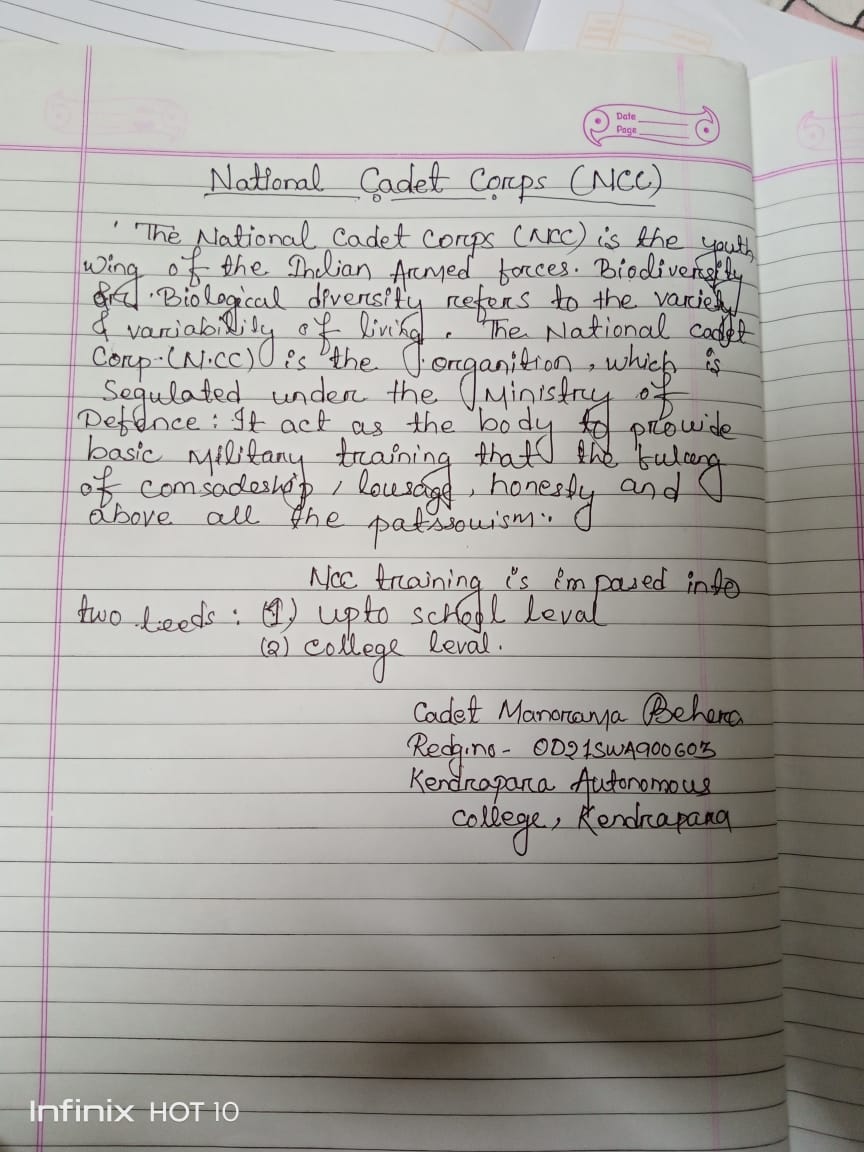 Date
Page
National Cadet Corps (NCC)
' The National Cadet Corps (NCC) is the youth
wing of the Indian Armed forces. Biodiversity
. Biological diversity refers to the variety
& variability of living. The National cadet
Corp.(N.CC) is the organition, which is
Segulated under the Ministry of
Defence: It act as the body to provide
basic Military training that the
of comsadeship, lousage, honesty and
above all the patssouism..
Ncc training is impased into
two leeds: (1) upto school leval
(2) college leval.
Cadet Manoranja Behera
Redg.no- OD21SWA900603
Kendrapara Autonomous
college, Kendrapara
Infinix HOT 10